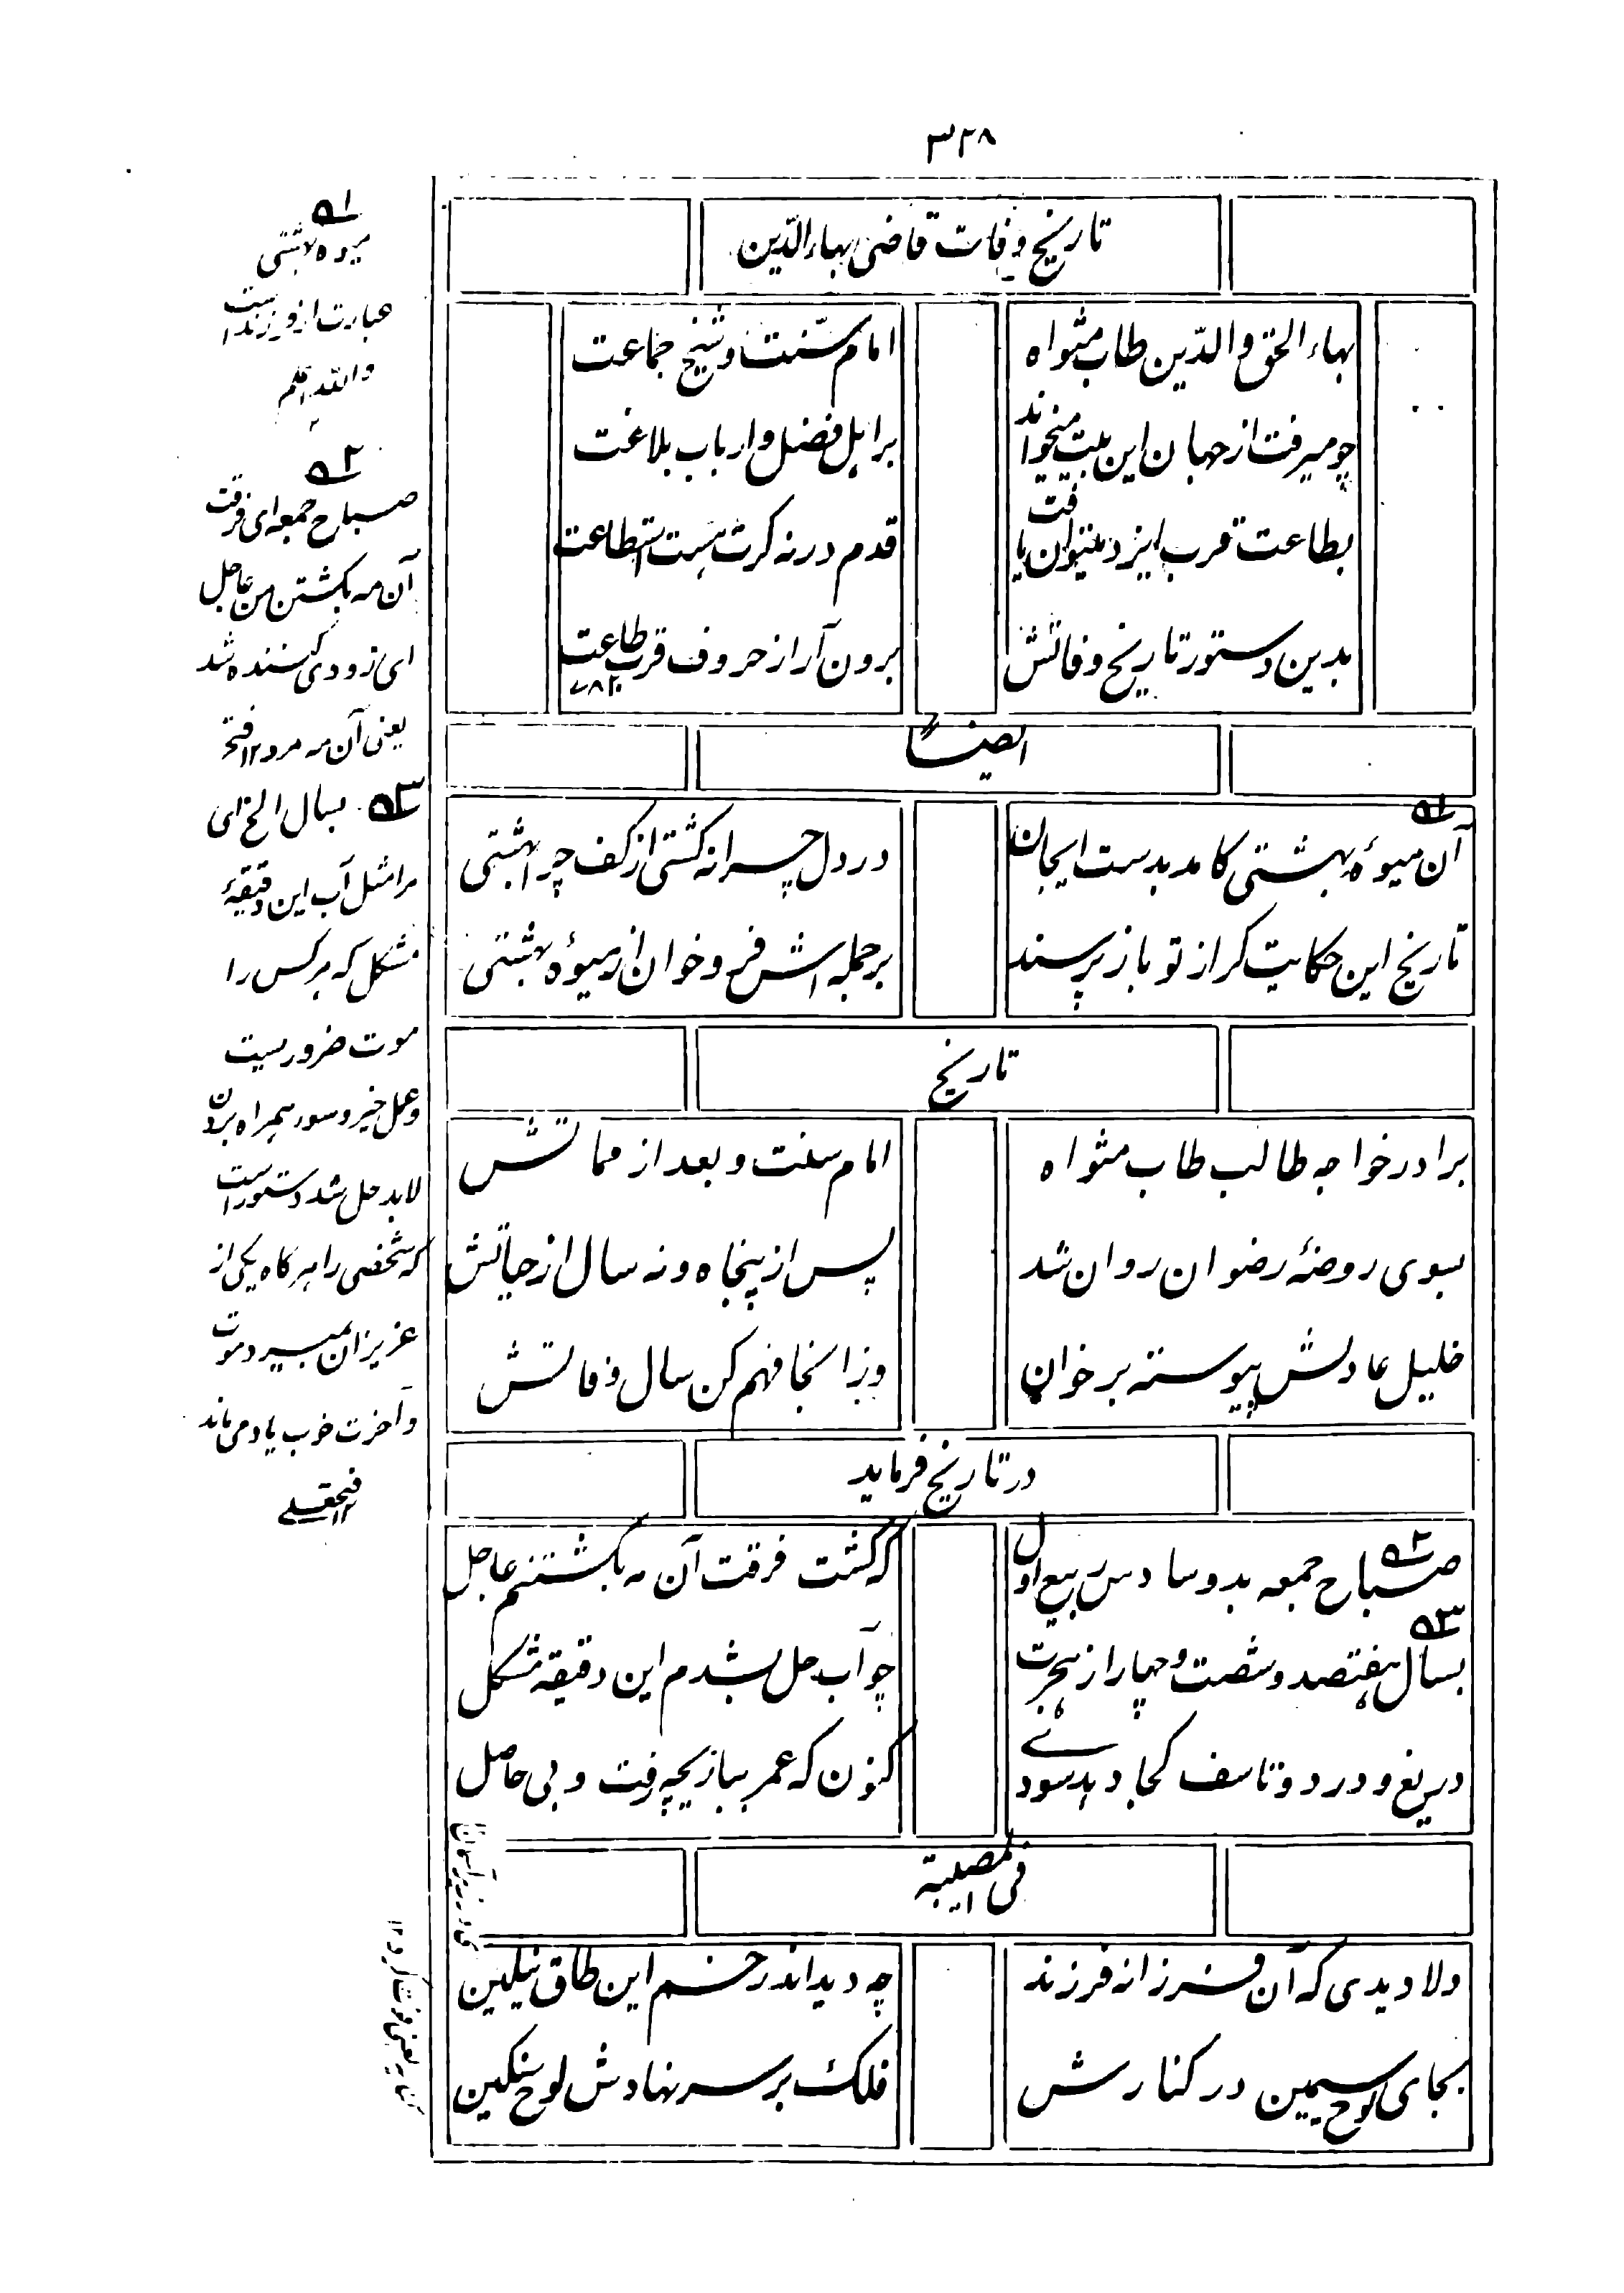 ۳۲۸
تاریخ وفات قاضی بهاءالدّین
بهاء الحق والدّین طاب مثواه
امام سنّت و شیخ جماعت
چو میرفت از جهان این بیت میخواند
بر اهل فضل و ارباب بلاغت
بطاعت قرب ایزد میتوان یافت
قدم در نه گرت هست استطاعت
بدین دستور تاریخ وفاتش
برون آر از حروف قرب طاعت
۷۸۲
ایضاً
۵۱
آن میوهٔ بهشتی کامد بدست ایجان
در دل چرا نه کشتی از کف چرا بهشتی
تاریخ این حکایت گر از تو باز پرسند
بر جمله اش فرو خوان از میوهٔ بهشتی
تاریخ
برادر خواجه طالب طاب مثواه
امام سنت و بعد از مماتش
بسوی روضهٔ رضوان روان شد
پس از پنجاه و نه سال از حیاتش
خلیل عادلش پیوسته برخوان
وز انجا فهم کن سال وفاتش
در تاریخ فرماید
۵۲
صباح جمعه بد و سادس ربیع اول
که گشت فرقت آن مه بکشتنم عاجل
۵۳
بسال هفتصد و شصت و چهار از هجرت
چو آب حل بشدم این دقیقه مشکل
دریغ و درد و تاسف کجا دهد سودے
کنون که عمر ببازیچه رفت و بی حاصل
فی المصیبة
دلا دیدی که آن فرزانه فرزند
چه دید اندر خم این طاق نیلگین
بجای لوح سیمین در کنارش
فلک بر سر نهادش لوح سنگین
۵۱
میوه بهشتی
عبارت از فرزند است
والله اعلم
۵۲
صباح جمعه ای فرقت
آن مه بکشتن من عاجل
ای زودی کننده شد
یعنی آن مه مرد ۱۲ فتح
۵۳ بسال الخ ای
مرا مثل آب این دقیقهٔ
مشکل که هر کس را
موت ضروریست
و عمل خیر و سود همراه بردن
لابد حل شد دستور است
که شخصی را هرگاه یکی از
عزیزان بمیرد موت
و آخرت خوب یاد می ماند